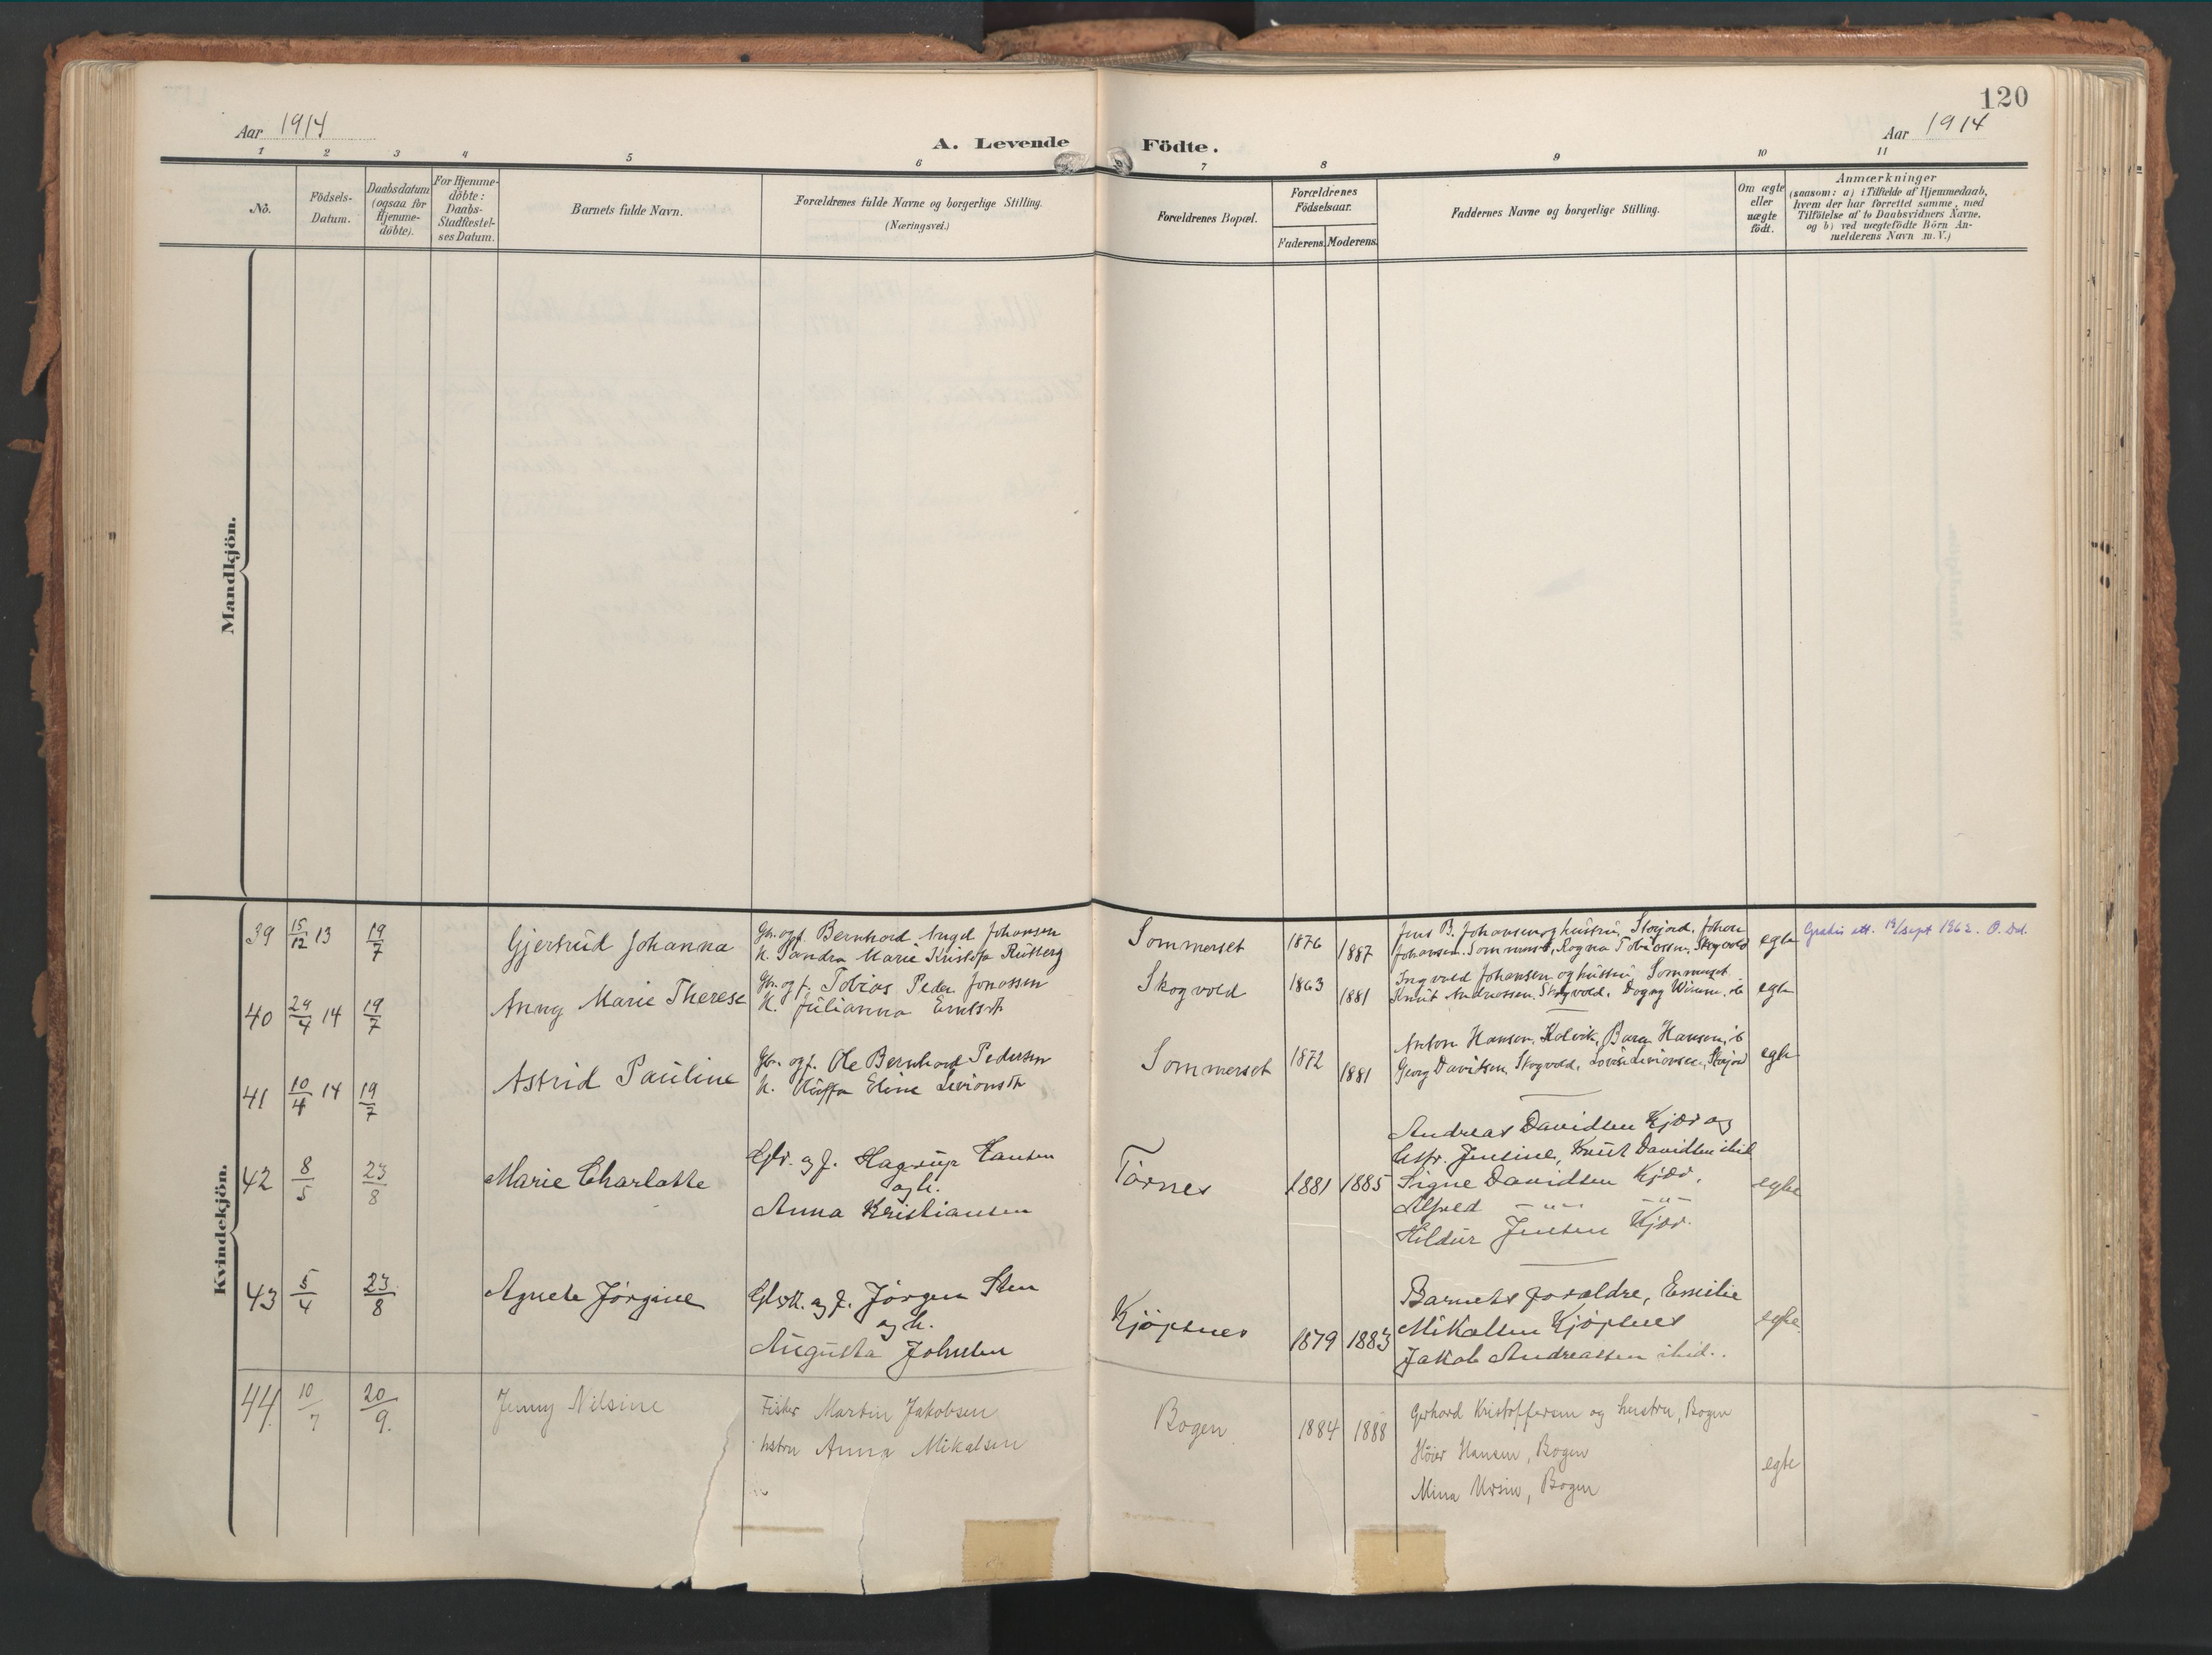 120
Aar 1914
A. Levende Födte.
Aar 1914
1 2 3 4 5 6 7 8 9 10 11
No.
Födsels-
Datum.
Daabsdatum
(ogsaa for
Hjemme-
döbte).
For Hjemme-
döbte:
Daabs-
Stadfæstel-
ses Datum.
Barnets fulde Navn.
Forældrenes fulde Navne og borgerlige Stilling.
(Næringsvei.)
Forældrenes Bopæl.
Forældrenes
Födselsaar.
Faderens. Moderens.
Faddernes Navne og borgerlige Stilling.
Om ægte
eller
uægte
født.
Anmærkninger
(saasom: a) i Tilfælde af Hjemmedaab,
hvem der har forrettet samme, med
Tilföielse af to Daabsvidners Navne.
og b) ved uægtefödte Börn An-
melderens Navn m. V.)
Mandkjön.
Kvindekjön.
39 15/12 13 19/7 Gjertrud Johanna
Gbr. og f. Bernhard Angel Johansen
h. Sandra Marie Kristofa
Sommerset 1876 1887
Jens B. Johansen og hustru, Storjord, Johan
Johansen. Sommerset, Ragna Tobiassen, Skogvold
egte
Gratis att. sept 1962.
40 29/4 14 19/7 Anny Marie Therese
Gbr. og f. Tobias Peder Jonassen
h. Julianna
Skogvold 1863 1881
Ingvald Johansen og hustru, Sommerset
Knut Andreassen. Skogvold. Dagny
egte
41 10/4 14 19/7 Astrid Pauline
Gbr. og f. Ole Bernhard Pedersen
h. Eline
Sommerset 1872 1881
Anton Hansen, Kolvik,
Georg Davidsen, Skogvold,
egte
42 8/5 23/8 Marie Charlotte
Gbr. og f. Hagrup Hansen
og h.
Anna Kristiansen
Tørnes 1881 1885
Andreas Davidsen Kjær og
hstr. Jensine, Knut Davidsen ibid
Signe Davidsen Kjær.
Alfred —"— —"—
Hildur Jensen Kjær.
egte
43 5/4 23/8 Agnete Jørgine
og f. Jørgen Sten
og h.
Augusta Johnsen
Kjøpsnes 1879 1883
Barnets forældre, Emilie
Mikalsen Kjøpsnes
Jakob Andreassen ibid.
egte.
44 10/7 20/9. Jenny Nilsine
Fisker Martin Jakobsen
hstru Anna Mikalsen
Bogen 1884 1888
Gerhard Kristoffersen og hustru, Bogen
Höier Hansen, Bogen
Mina Ursin, Bogen
egte